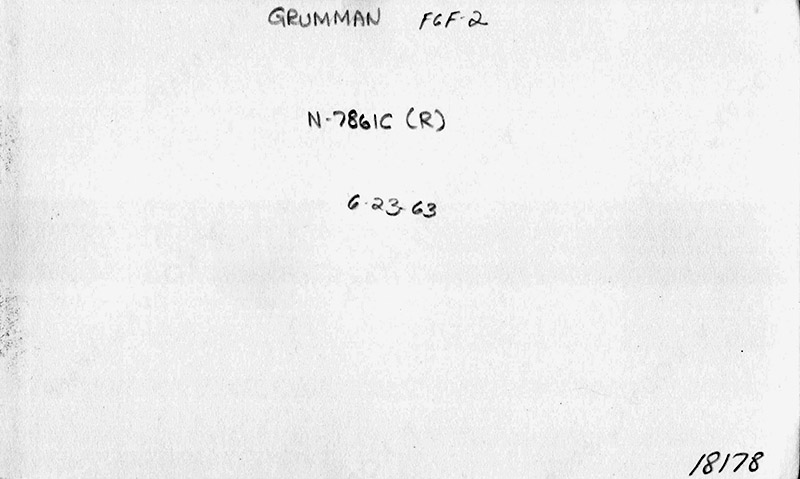 GRUMMAN F6F-2
N-7861C (R)
6-23-63
18178